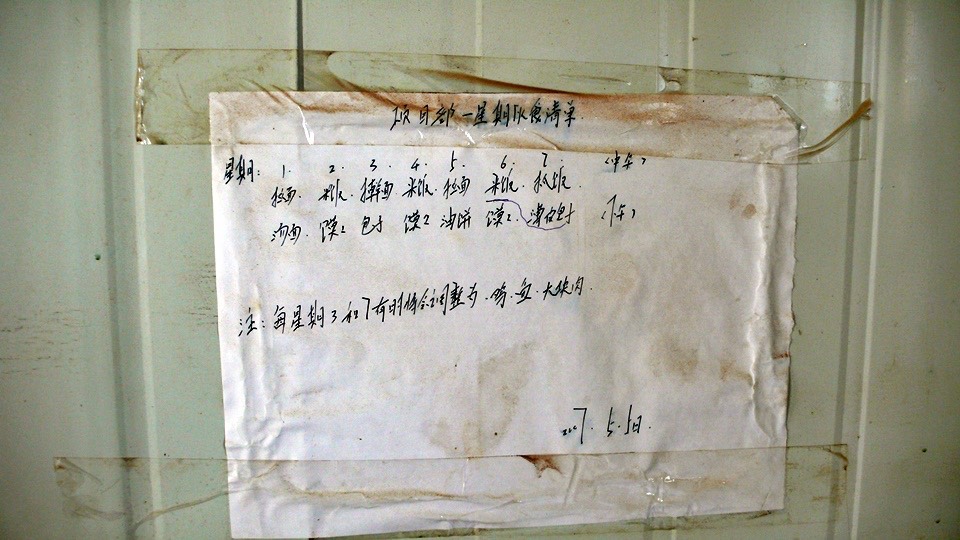 项目部一星期伙食清单
星期: 1. 2. 3. 4. 5. 6. 7. (中午)
拉面. 米饭. 米饭. 拉面 米饭. 抓饭.
汤面. 馍2 包子 馍2 油饼 馍2. 包子 (下午)
注: 每星期3和7有时将会调整为. 鸡. 鱼. 大块肉.
2007. 5. 5日.